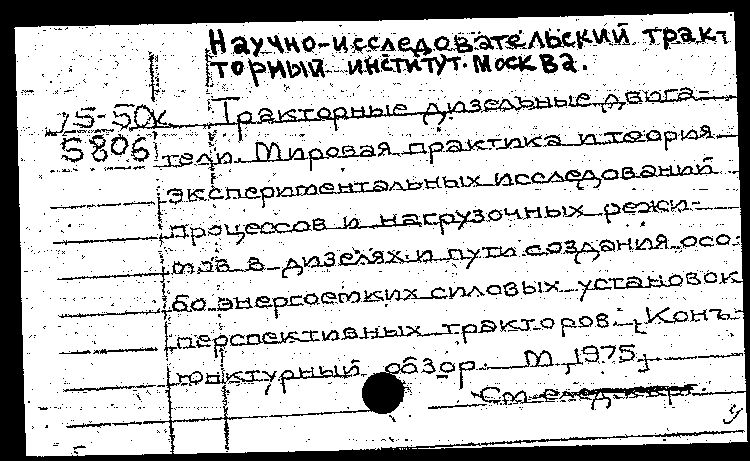 Научно-исследовательский трак-
торный институт. Москва.
75-50к Тракторные дизельные двига-
5806 тели. Мировая практика и теория
экспериментальных исследований
процессов и нагрузочных режи-
мов в дизелях и пути создания осо-
бо энергоемких силовых установок
перспективных тракторов. [Конъ-
юнктурный обзор. М, 1975]
См след. карт.